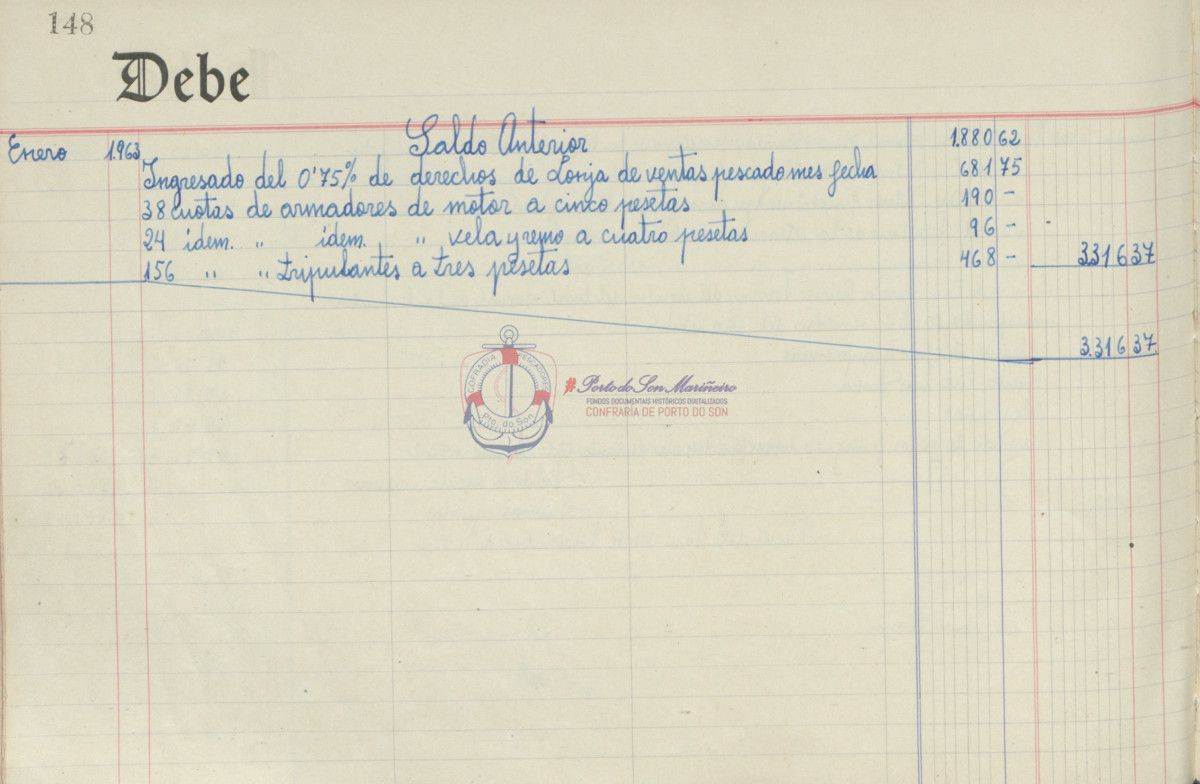 148
Debe
Enero 1.963 Saldo Anterior 1.880 62
Ingresado del 0'75% de derechos de Lonja de ventas pescado mes fecha 681 75
38 cuotas de armadores de motor a cinco pesetas 190 -
24 idem. " idem. " vela y remo a cuatro pesetas 96 -
156 " " tripulantes a tres pesetas 468 - 3316 37
3.316 37
COFRADIA PESCADORES
Pto. do Son
#Porto do Son Mariñeiro
FONDOS DOCUMENTAIS HISTÓRICOS DIXITALIZADOS
CONFRARÍA DE PORTO DO SON